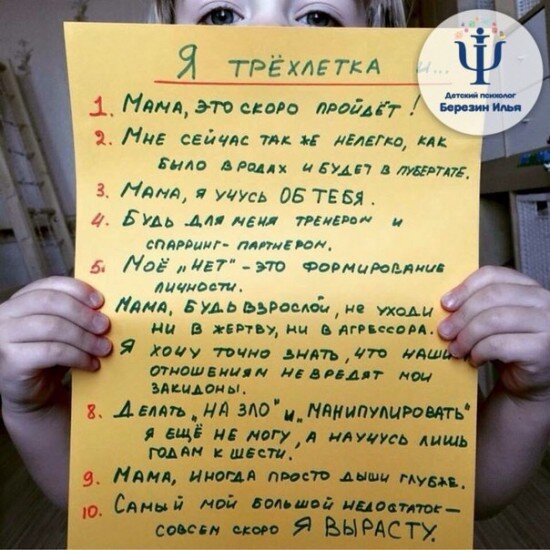 Я ТРЁХЛЕТКА И...
Детский психолог
Березин Илья
1. МАМА, ЭТО СКОРО ПРОЙДЁТ!
2. МНЕ СЕЙЧАС ТАК ЖЕ НЕЛЕГКО, КАК
БЫЛО В РОДАХ И БУДЕТ В ПУБЕРТАТЕ.
3. МАМА, Я УЧУСЬ ОБ ТЕБЯ.
4. БУДЬ ДЛЯ МЕНЯ ТРЕНЕРОМ И
СПАРРИНГ-ПАРТНЁРОМ.
5. МОЁ „НЕТ" - ЭТО ФОРМИРОВАНИЕ
ЛИЧНОСТИ.
МАМА, БУДЬ ВЗРОСЛОЙ, НЕ УХОДИ
НИ В ЖЕРТВУ, НИ В АГРЕССОРА.
Я ХОЧУ ТОЧНО ЗНАТЬ, ЧТО НАШИМ
ОТНОШЕНИЯМ НЕ ВРЕДЯТ МОИ
ЗАКИДОНЫ.
8. ДЕЛАТЬ „НА ЗЛО" И „МАНИПУЛИРОВАТЬ"
Я ЕЩЁ НЕ МОГУ, А НАУЧУСЬ ЛИШЬ
ГОДАМ К ШЕСТИ.
9. МАМА, ИНОГДА ПРОСТО ДЫШИ ГЛУБЖЕ.
10. САМЫЙ МОЙ БОЛЬШОЙ НЕДОСТАТОК -
СОВСЕМ СКОРО Я ВЫРАСТУ.